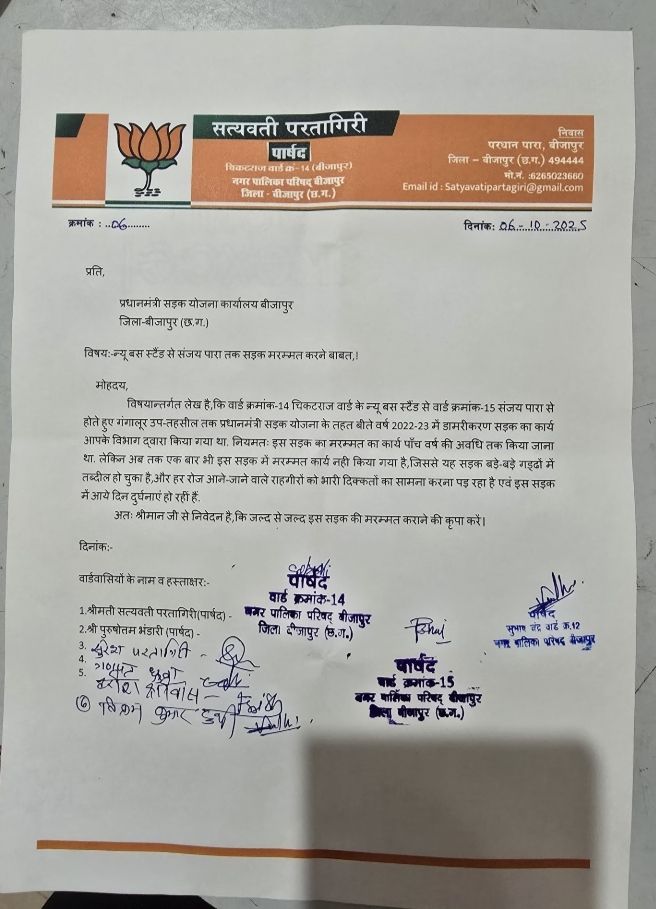 सत्यवती परतागिरी
पार्षद
चिकटराज वार्ड क्र.-14 (बीजापुर)
नगर पालिका परिषद् बीजापुर
जिला - बीजापुर (छ.ग.)
निवास
परधान पारा, बीजापुर
जिला – बीजापुर (छ.ग.) 494444
मो.नं. :6265023660
Email id : Satyavatipartagiri@gmail.com
क्रमांक : ..06.........
दिनांक: 06.-.10.-.2025
प्रति,
प्रधानमंत्री सड़क योजना कार्यालय बीजापुर
जिला-बीजापुर (छ.ग.)
विषय:-न्यू बस स्टैंड से संजय पारा तक सड़क मरम्मत करने बाबत,!
मोहदय,
विषयान्तर्गत लेख है,कि वार्ड क्रमांक-14 चिकटराज वार्ड के न्यू बस स्टैंड से वार्ड क्रमांक-15 संजय पारा से
होते हुए गंगालूर उप-तहसील तक प्रधानमंत्री सड़क योजना के तहत बीते वर्ष 2022-23 में डामरीकरण सड़क का कार्य
आपके विभाग द्वारा किया गया था. नियमतः इस सड़क का मरम्मत का कार्य पाँच वर्ष की अवधि तक किया जाना
था. लेकिन अब तक एक बार भी इस सड़क में मरम्मत कार्य नही किया गया है,जिससे यह सड़क बड़े-बड़े गड्ढों में
तब्दील हो चुका है,और हर रोज आने-जाने वाले राहगीरों को भारी दिक्कतों का सामना करना पड़ रहा है एवं इस सड़क
में आये दिन दुर्घनाएं हो रहीं हैं.
अतः श्रीमान जी से निवेदन है,कि जल्द से जल्द इस सड़क की मरम्मत कराने की कृपा करें|
दिनांक:-
वार्डवासियों के नाम व हस्ताक्षर:-
पार्षद
वार्ड क्रमांक-14
नगर पालिका परिषद् बीजापुर
जिला बीजापुर (छ.ग.)
पार्षद
सुभाष चंद्र वार्ड क्र.12
नगर पालिका परिषद् बीजापुर
1.श्रीमती सत्यवती परतागिरी(पार्षद) -
2.श्री पुरुषोतम भंडारी (पार्षद) -
3. सुरेश परतागिरी -
4.
5.
पार्षद
वार्ड क्रमांक-15
नगर पालिका परिषद् बीजापुर
जिला बीजापुर (छ.ग.)
6 कुमार